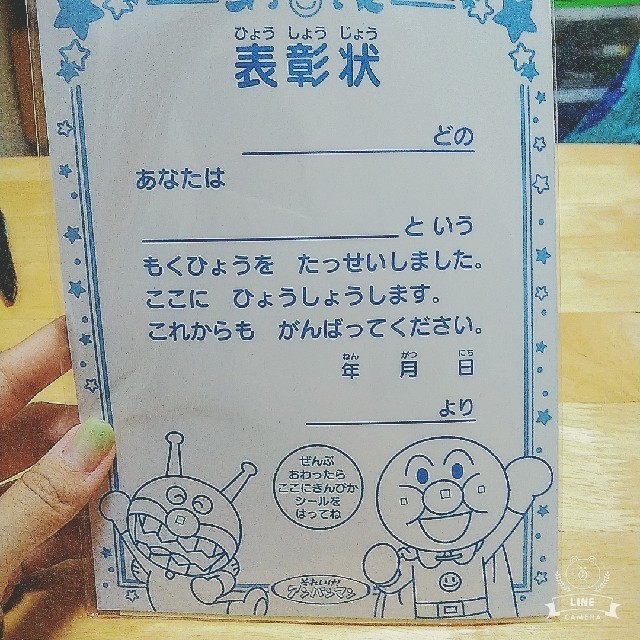 ひょう しょう じょう
表彰状
どの
あなたは
という
もくひょうを たっせいしました。
ここに ひょうしょうします。
これからも がんばってください。
ねん がつ にち
年 月 日
より
ぜんぶ
おわったら
ここにきんぴか
シールを
はってね
それいけ!
アンパンマン
LINE
CAMERA